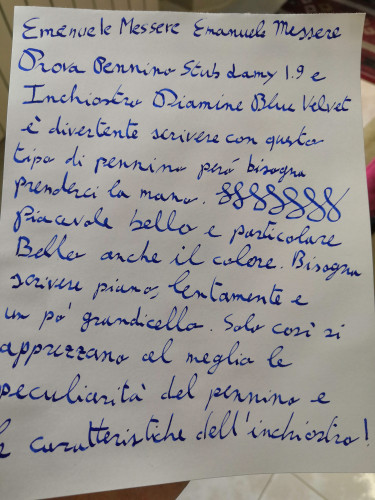 Emanuele Messere Emanuele Messere
Prova Pennino Stub Lamy 1.9 e
Inchiostro Diamine Blue Velvet
è divertente scrivere con questo
tipo di pennino però bisogna
prenderci la mano.
Piacevole bello e particolare
Bello anche il colore. Bisogna
scrivere piano, lentamente e
un pò grandicello. Solo così si
apprezzano al meglio le
peculiarità del pennino e
le caratteristiche dell'inchiostro!